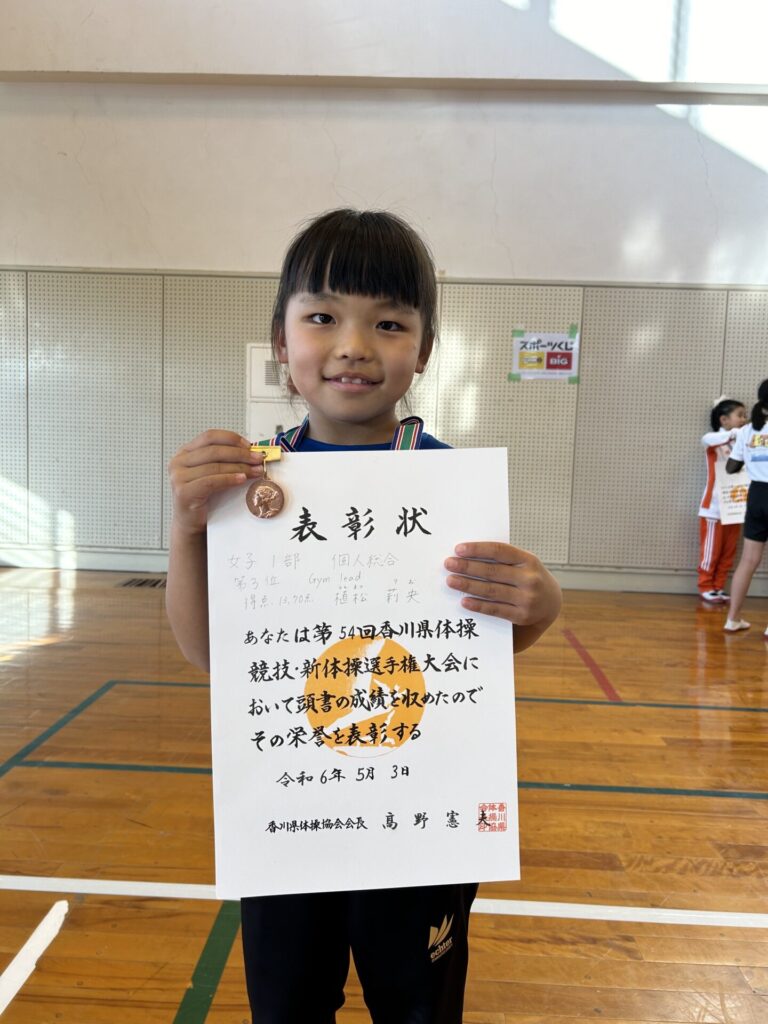 スポーツくじ
BIG
表彰状
女子 1部 個人総合
第3位 Gym lead
得点 13.70点 植松 莉央
あなたは第54回香川県体操
競技・新体操選手権大会に
おいて頭書の成績を収めたので
その栄誉を表彰する
令和6年5月3日
香川県体操協会会長 髙野憲夫
echter